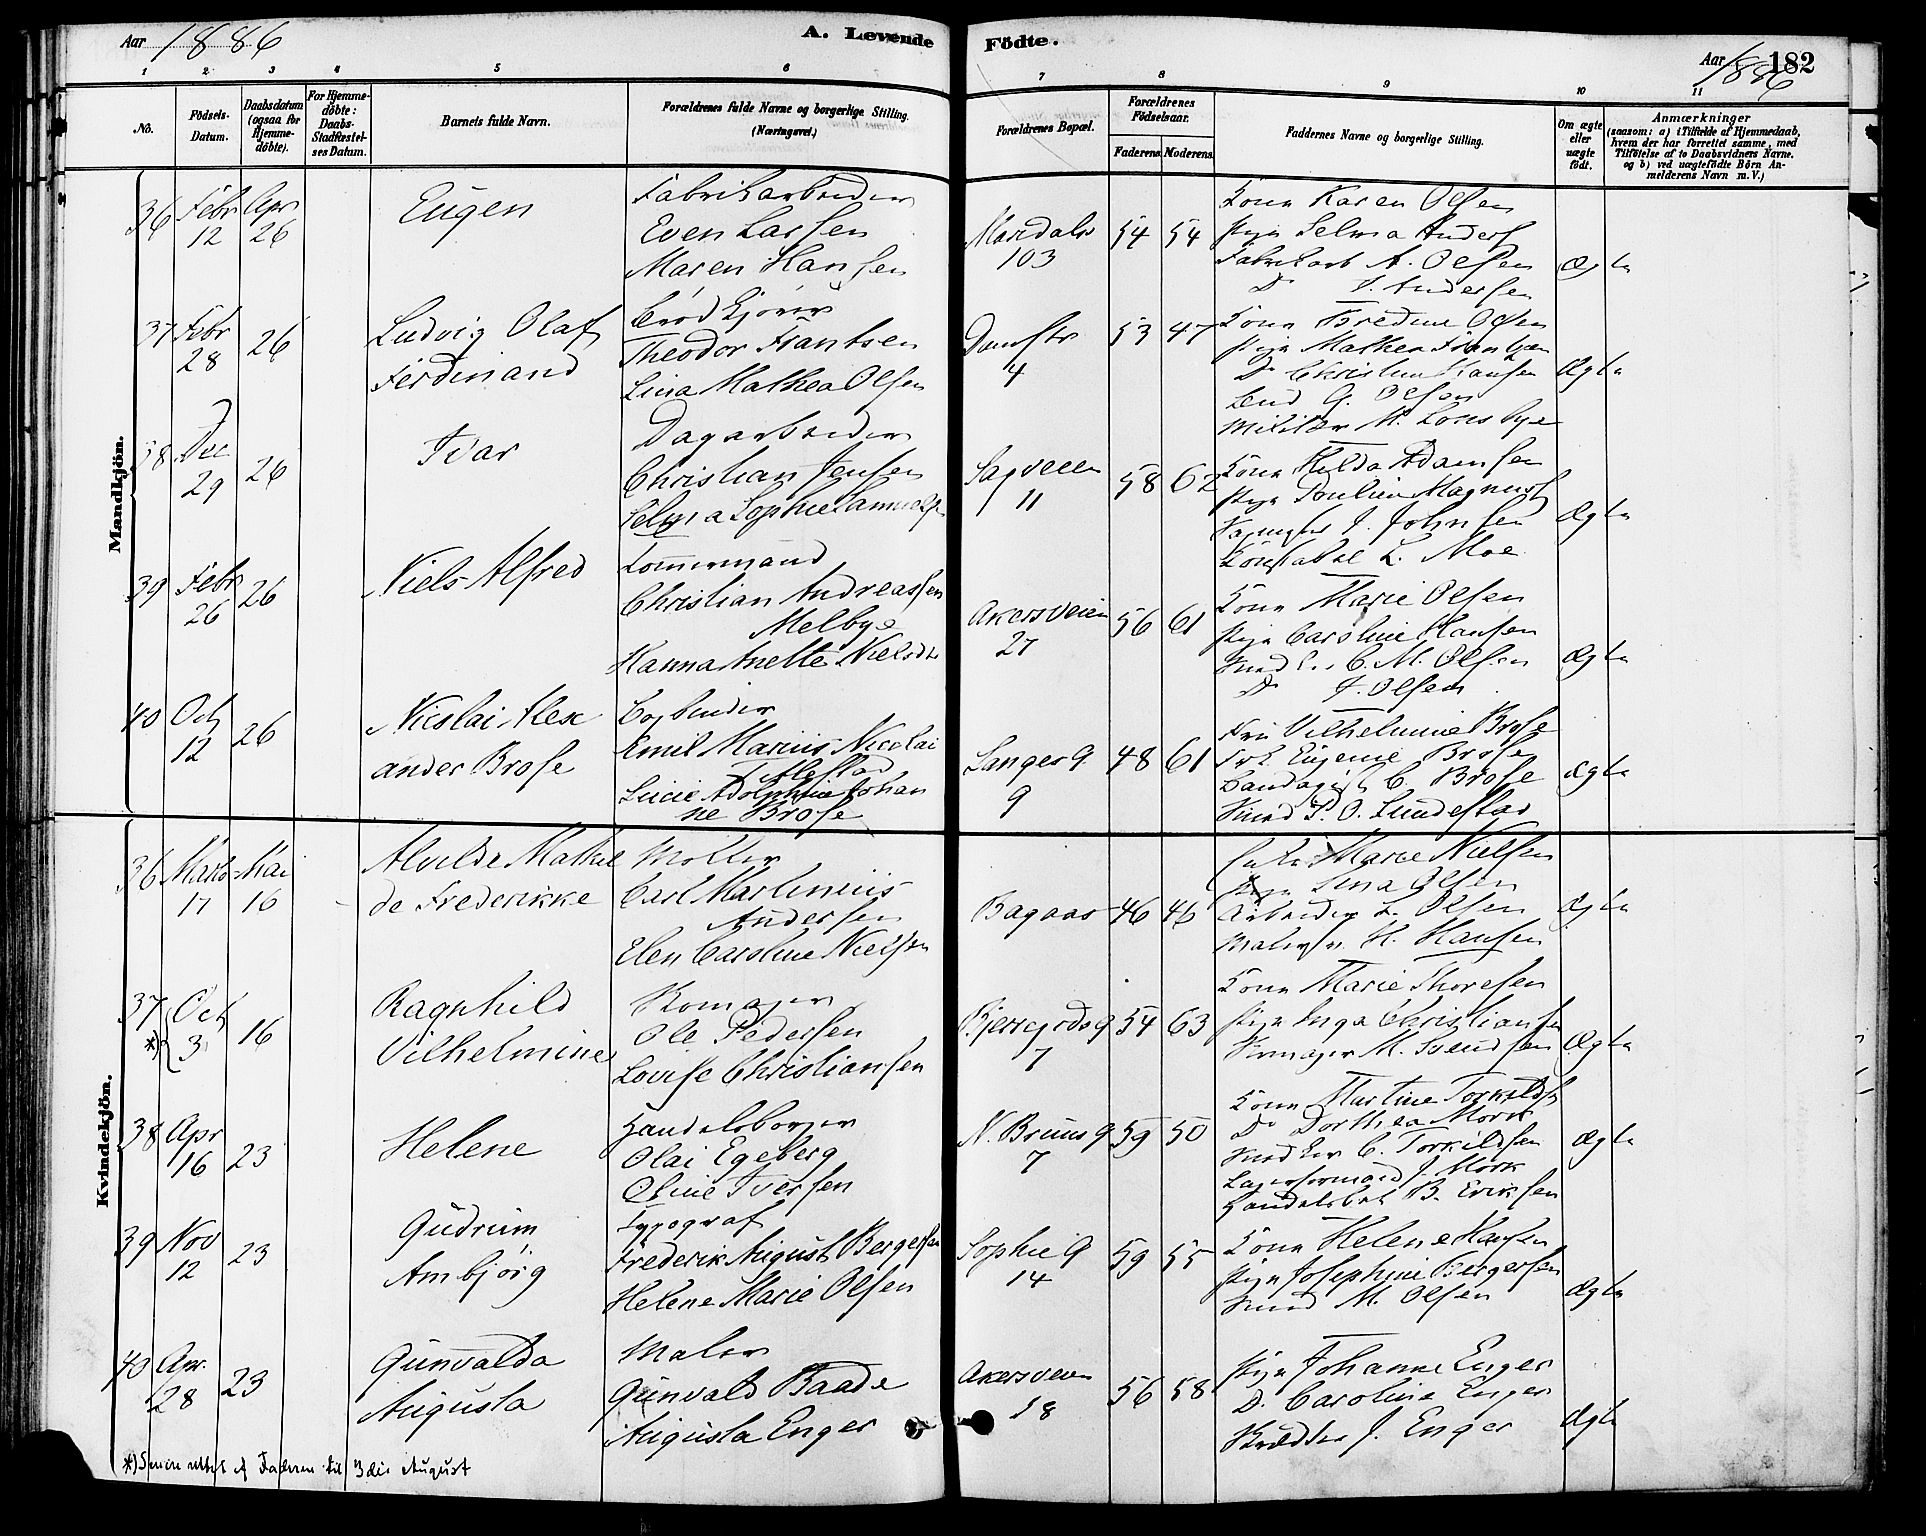 Aar 1886 A. Levende Födte. Aar 1886 182
1 2 3 4 5 6 7 8 9 10 11
No.
Födsels-Datum.
Daabsdatum (ogsaa for Hjemme-döbte).
For Hjemme-döbte: Daabs-Stadfæstel-ses Datum.
Barnets fulde Navn.
Forældrenes fulde Navne og borgerlige Stilling.
(Næringsvei.)
Forældrenes Bopæl.
Forældrenes Födselsaar.
Faderens Moderens
Faddernes Navne og borgerlige Stilling.
Om ægte eller uægte födt.
Anmærkninger
(saasom: a) i Tilfælde af Hjemmedaab,
hvem der har forrettet samme, med
Tilföielse af to Daabsvidners Navne.
og b) ved uægtefödte Börn An-
melderens Navn m. V.)
Mandkjön.
36 Febr 12 Apr 26
Eugen
Fabrikarbeider
Even Larsen
Maren Hansen
Maridalsv 103
54 54
Kone Karen Olsen
Pige Selma Anders
Fabrikarb A. Olsen
Do J. Andersen
Ægte
37 Febr 28 26
Ludvig Olaf
Ferdinand
Brödkjörer
Theodor Frantsen
Lina Mathea Olsen
Damstr 4
53 47
Kone Fredine Olsen
Pige Mathea Frantsen
Do Christine Hansen
Bud G. Olsen
Militær M. Lornsbye
Ægte
38 Dec 29 26
Ivar
Dagarbeider
Christian Jensen
Selma Sophie Samuels
Sagveien 11
58 62
Kone Hilda Adamsen
Pige Pouline Magnus
J. Johnsen
Konstabel L. Moe
Ægte
39 Febr 26 26
Niels Alfred
Tömmermand
Christian Andreassen
Melbye
Hanna Anette Nielsdtr
Akersveien 27
56 61
Kone Marie Olsen
Pige Caroline Hansen
C. M. Olsen
Do J. Olsen
Ægte
40 Oct 12 26
Nicolai Alex
ander Brose
Bogbinder
Emil Marius Nicolai
Lucie Adolphine Johan
ne Brose
Langes G 9
48 61
Fru Vilhelmine Brose
Frk Eugenie Brose
Bandagist C. Brose
Smed P. O. Lundestad
Ægte
Kvindekjön.
36 Marts 17 Mai 16
Alvilde Mathil
de Frederikke
Möller
Carl Martinius
Andersen
Elen Caroline Nielsen
Bagaas
46 46
Enke Marie Nielsen
Pige Lina Olsen
Arbeider L. Olsen
Malersv. H. Hansen
Ægte
37 *) Oct 3 16
Ragnhild
Vilhelmine
Skomager
Ole Pedersen
Lovise Christiansen
Bjerregrds G 7
54 63
Kone Marie Thoresen
Pige Inga Christiansen
Skomager M. Svendsen
Ægte
38 Apr 16 23
Helene
Handelsborger
Olai Egeberg
Oline Iversen
N. Bruns G 7
59 50
Kone Martine Torkilds
Do Dorthea Mork
C. Torkildsen
Lagerformand J. Mörk
Handelsbet B. Eriksen
Ægte
39 Nov 12 23
Gudrun
Ambjörg
Typograf
Frederik August Bergersen
Helene Marie Olsen
Sophie G 14
59 55
Kone Helene Hansen
Pige Josephine Bergersen
Smed M. Olsen
Ægte
40 Apr. 28 23
Gunvalda
Augusta
Maler
Gunvald Baade
Augusta Enger
Akersveien 18
56 58
Pige Johanne Enger
Do Caroline Enger
Skrædder J. Enger
Ægte
*) Senere rettet af Faderen til 3die August